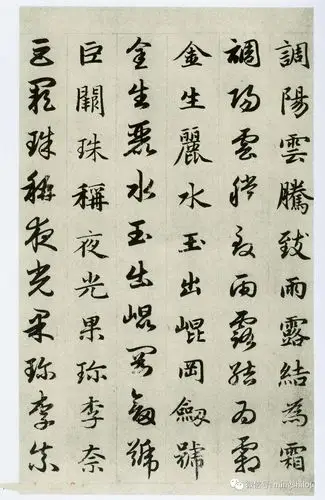 調陽雲騰致雨露結為霜
調陽雲騰致雨露結為霜
金生麗水玉出崐岡劒號
金生麗水玉出崐岡劒號
巨闕珠稱夜光果珍李奈
巨闕珠稱夜光果珍李奈
微信号: mingshilou